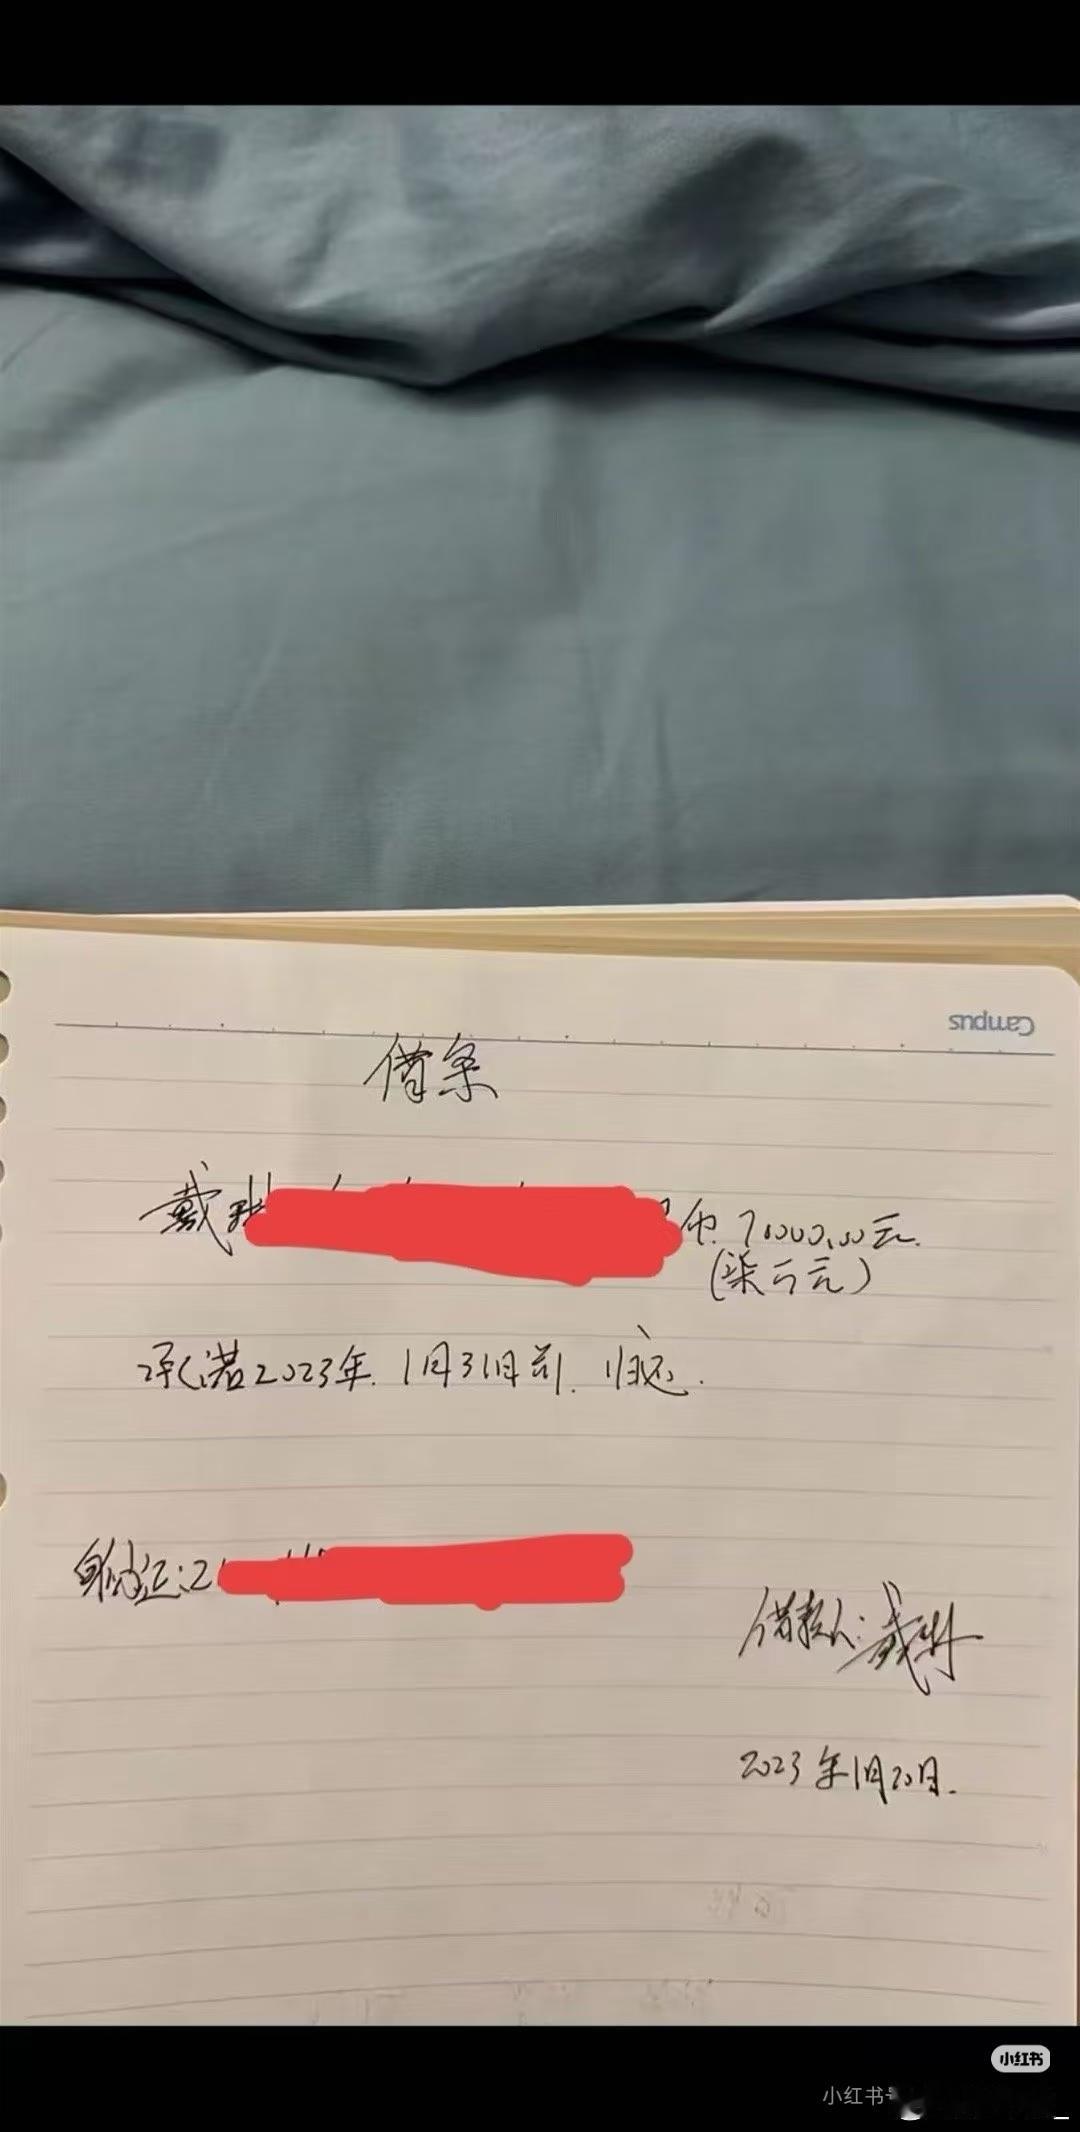 Campus
借条
戴 币 70000.00元.
(柒万元)
承诺2023年.1月31日前.归还.
身份证:2
借款人:戴琳
2023年1月20日.
小红书
小红书号